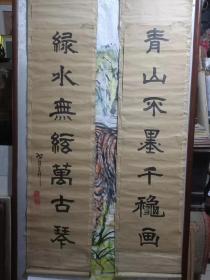 青山不墨千穐画
綠水無絃萬古琴